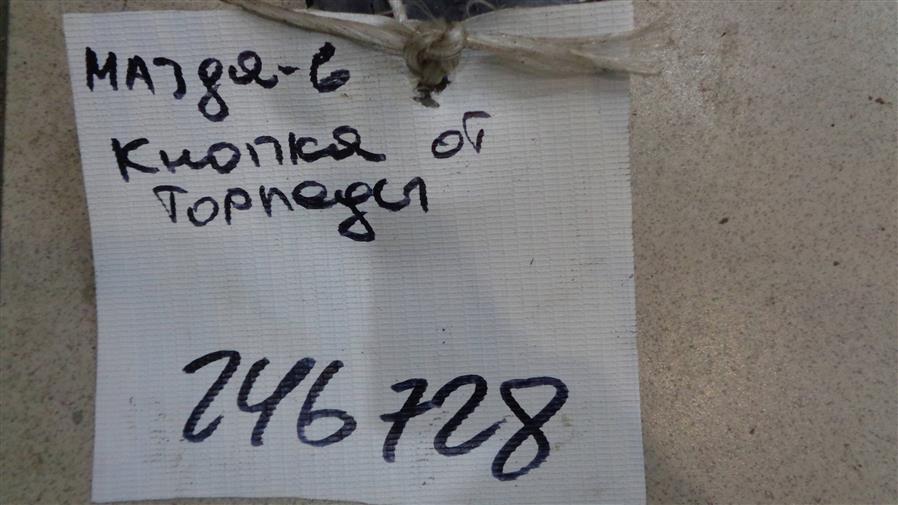 Мазда-6
Кнопка от
Торпеды
246728